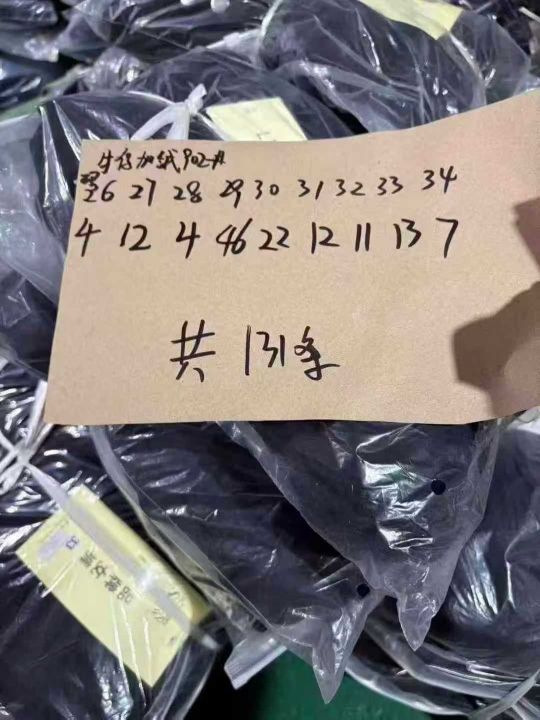 牛仔加绒902#
26 27 28 29 30 31 32 33 34
4 12 4 46 22 12 11 13 7
共 131条